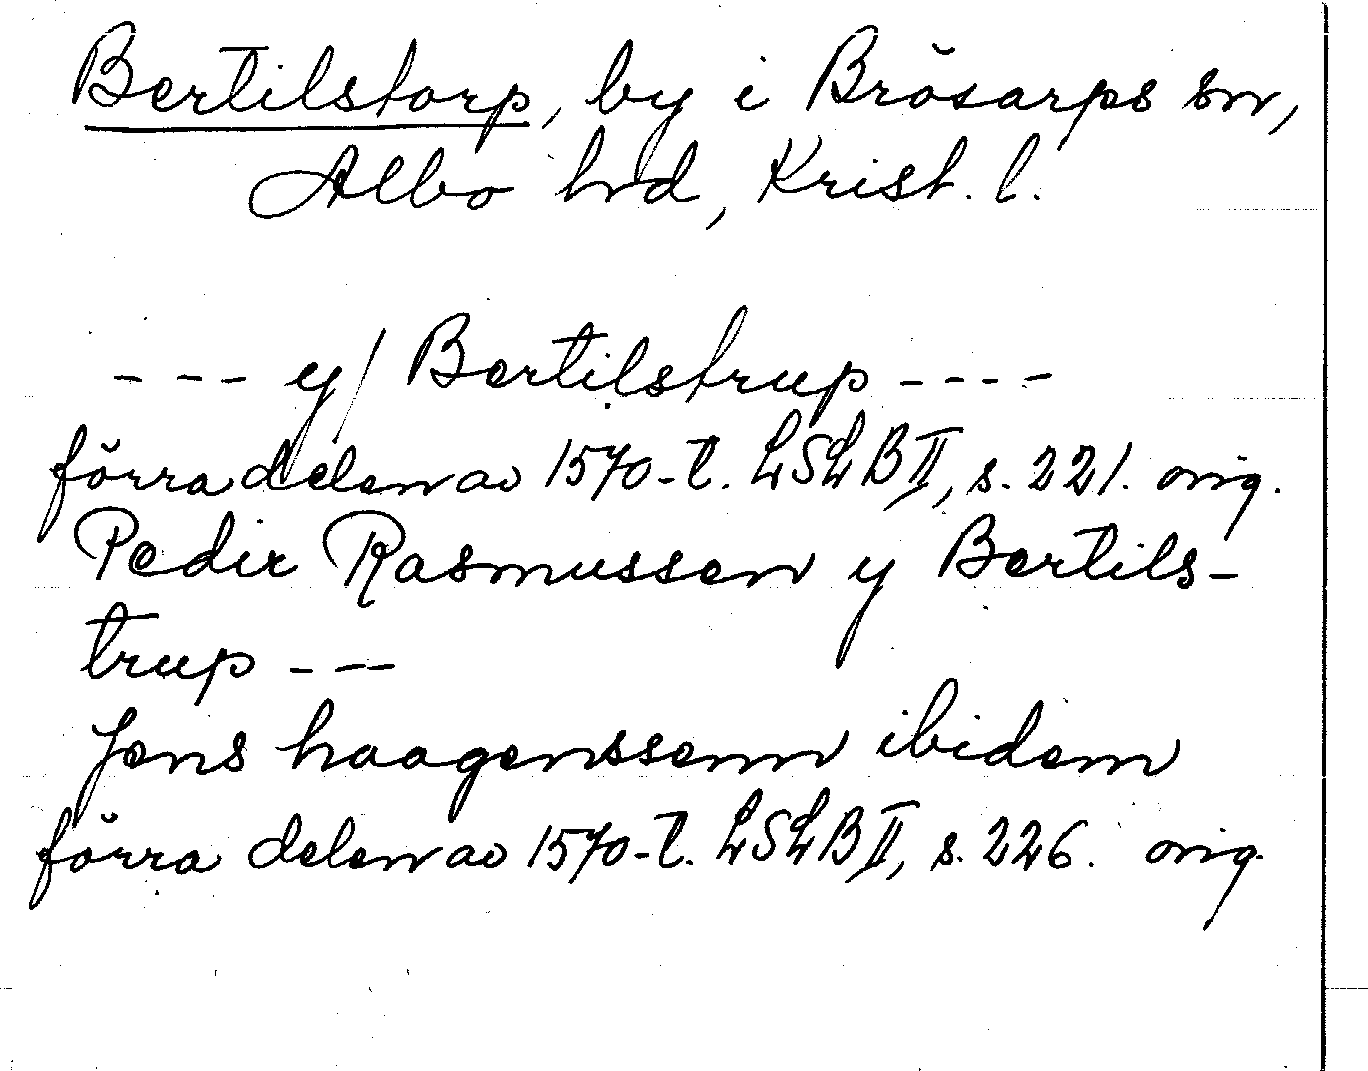 Bertilstorp, by i Brösarps sn,
Albo hrd, Krist. l.
--- y/ Bertilstrup ----
förra delen av 1570-t. LSLB II, s. 221. orig.
Pedir Rasmussen y Bertils-
trup ---
Jens haagenssenn ibidem
förra delen av 1570-t. LSLB II, s. 226. orig.